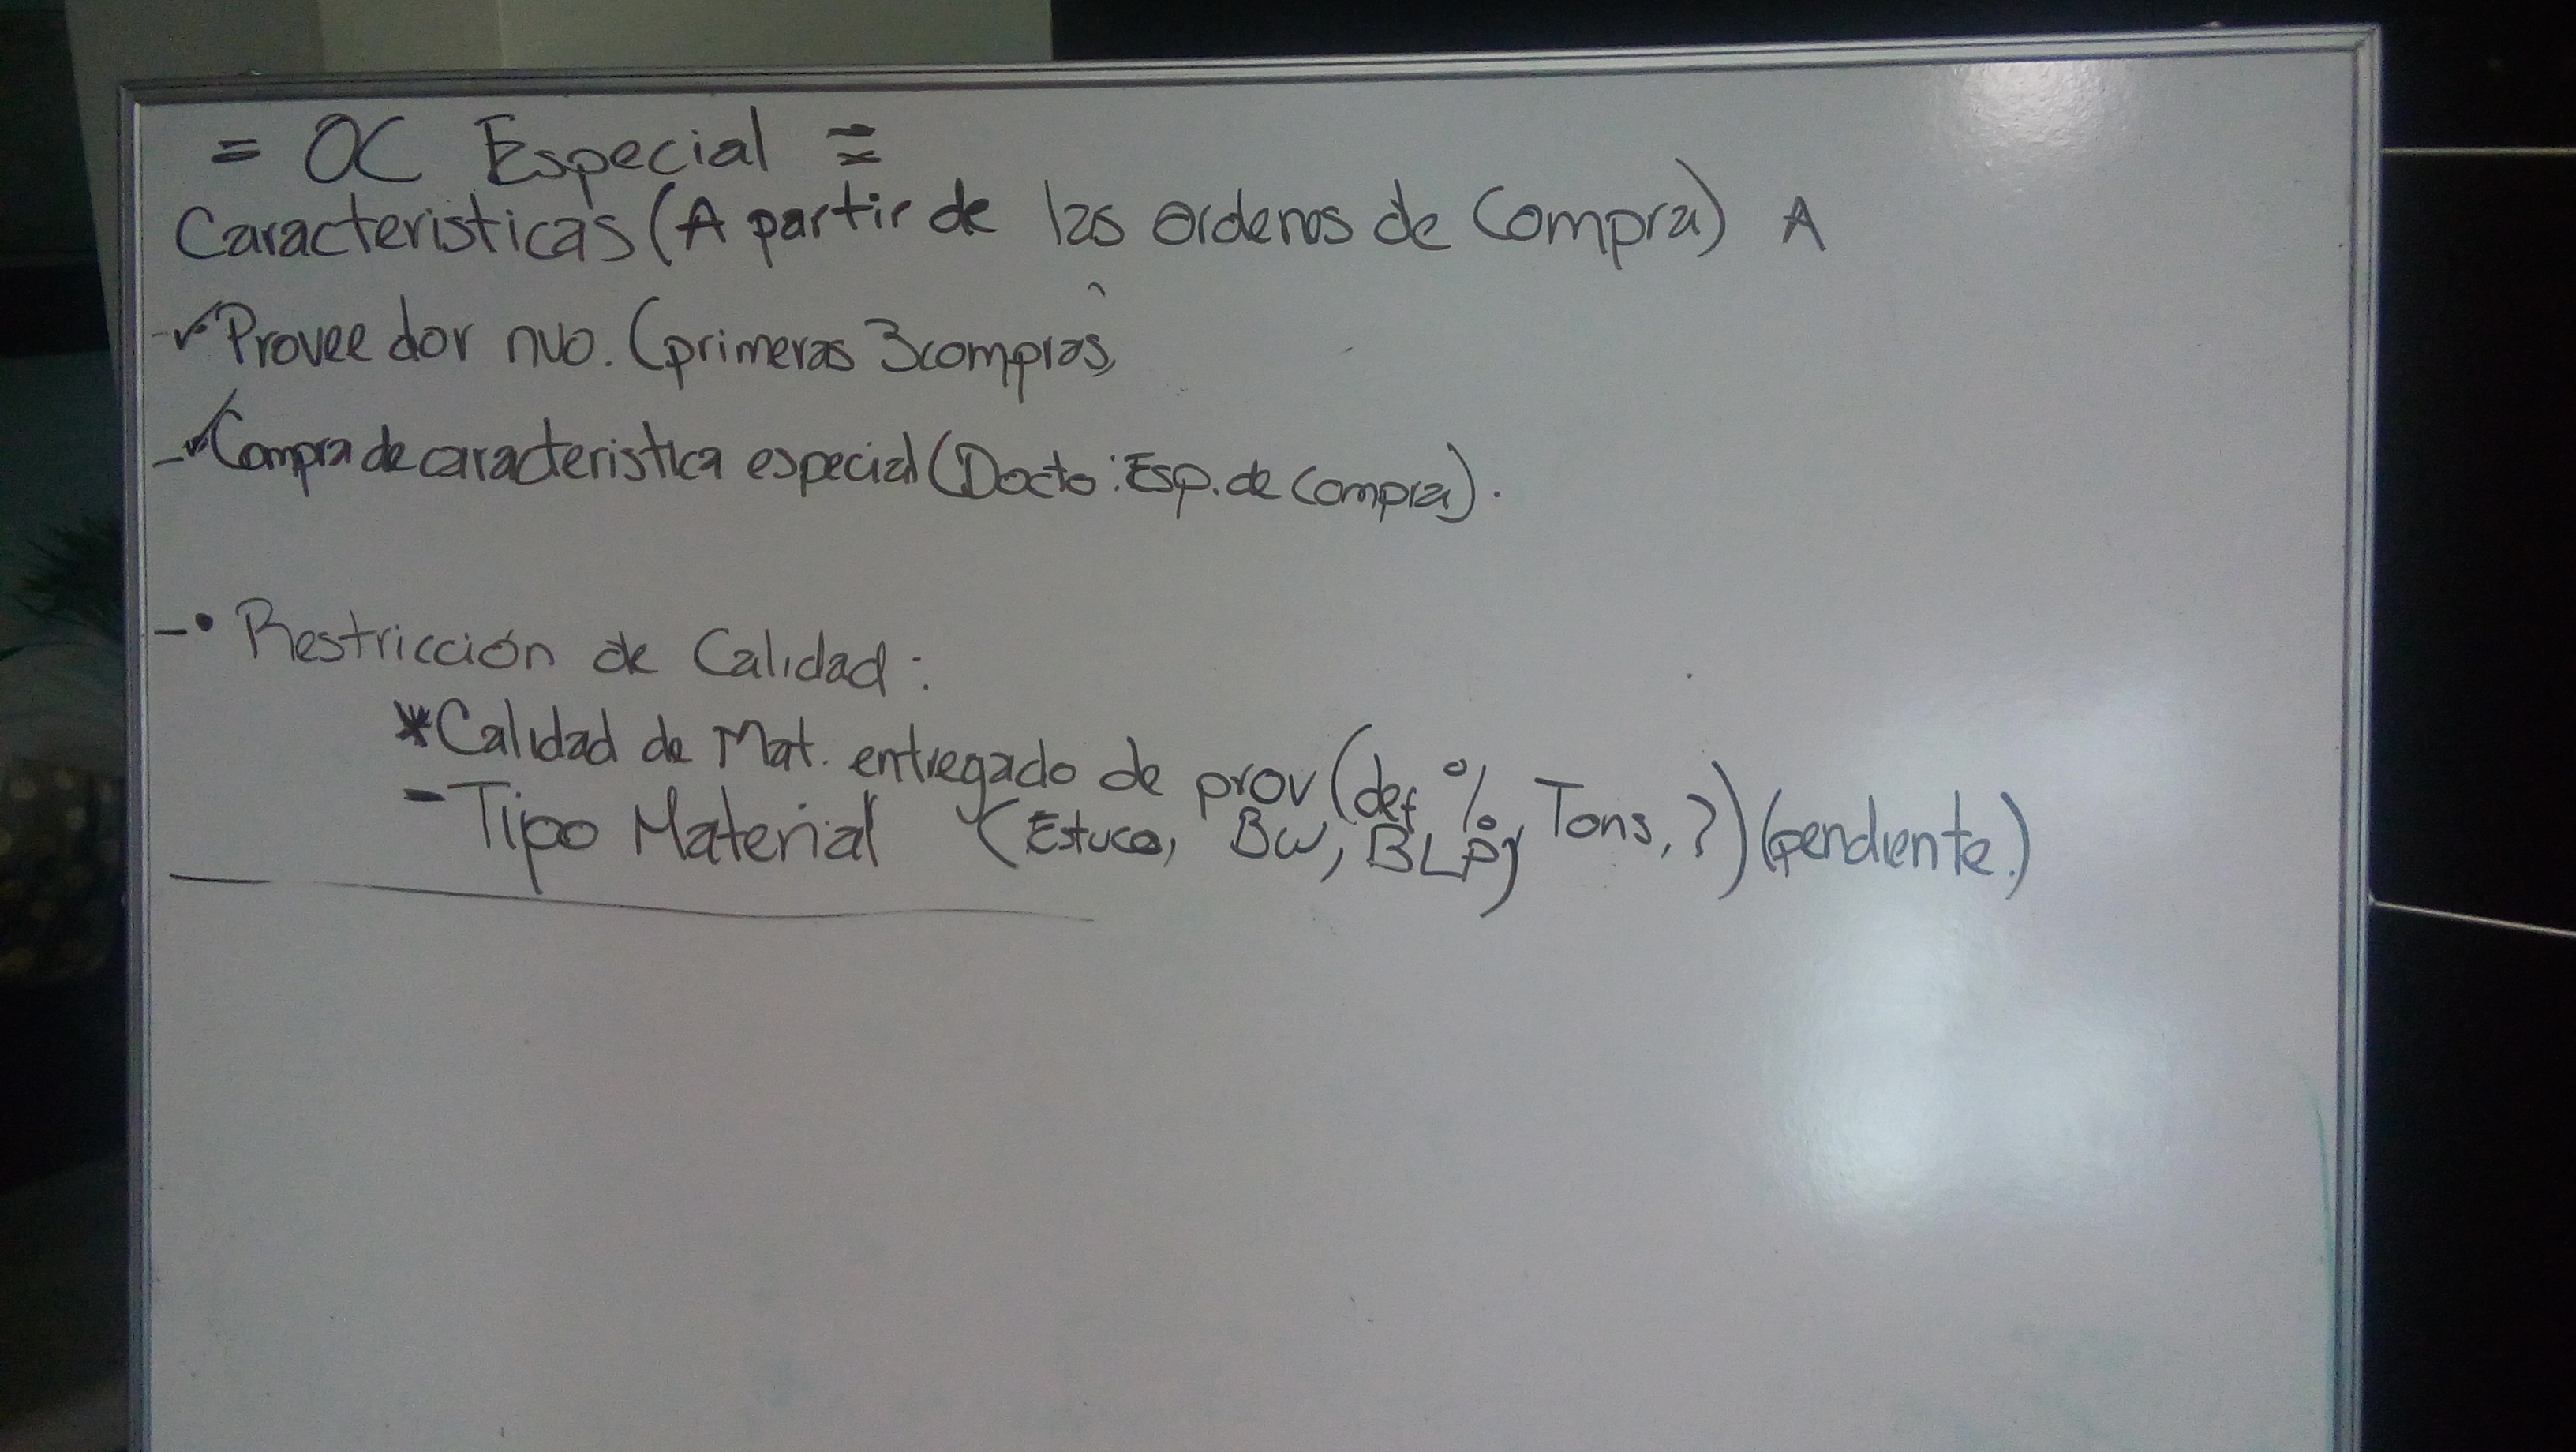 = OC Especial =
Caracteristicas (A partir de las ordenes de Compra) A
-✓ Proveedor nvo. (primeras 3 compras,
-✓ Compra de caracteristica especial (Docto: Esp. de Compra).
-• Restricción de Calidad:
*Calidad de Mat. entregado de prov (def %, Tons, ?) (pendiente.)
- Tipo Material (Estuco, BW, BLP)